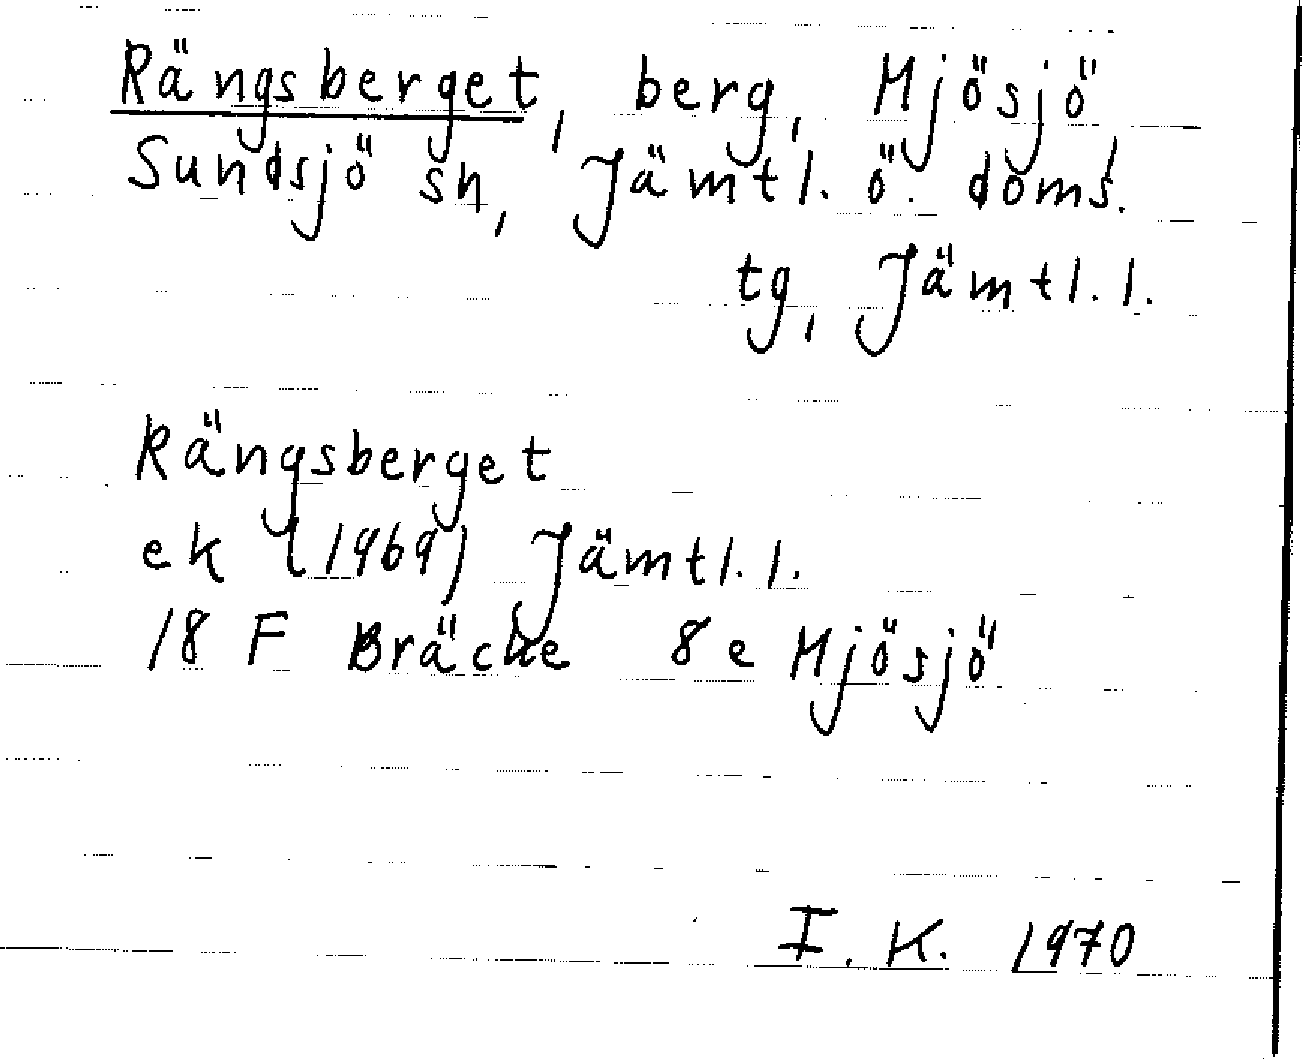 Rängsberget, berg, Mjösjö,
Sundsjö sn, Jämtl. ö. doms.
tg, Jämtl. l.
Rängsberget
ek (1969) Jämtl. l.
18 F Bräcke 8e Mjösjö
I. K. 1970